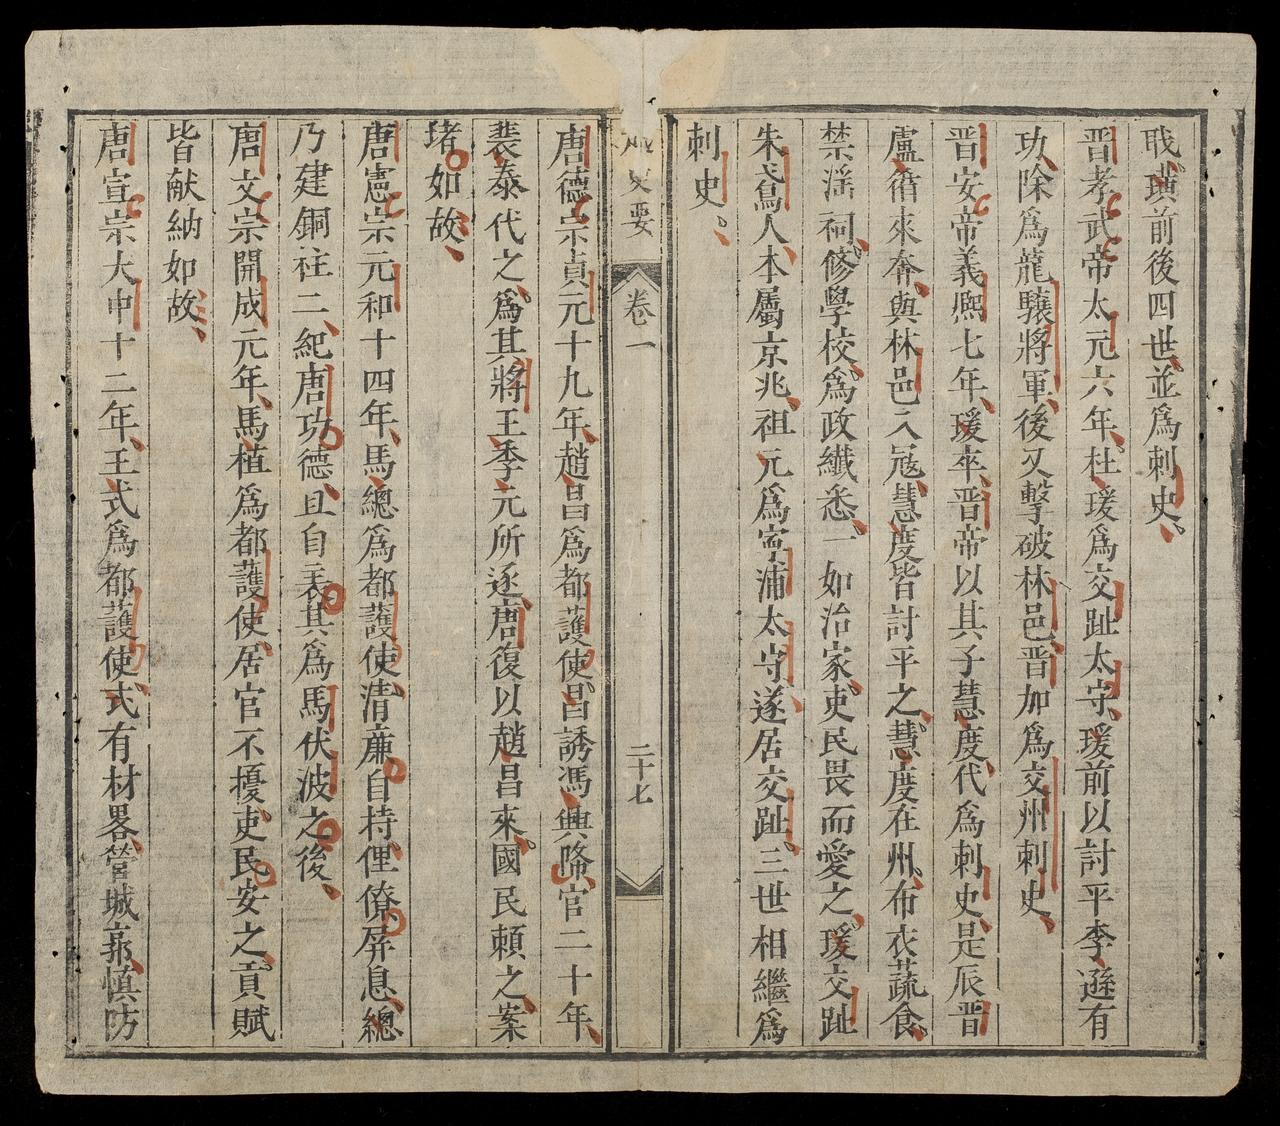 戢璜前後四世並爲刺史
晋孝武帝太元六年杜瑗爲交趾太守瑗前以討平李遜有
功除爲龍驤將軍後又擊破林邑晋加爲交州刺史
晋安帝義熙七年瑗卒晋帝以其子慧度代爲刺史是辰晋
盧循來奔與林邑入冦慧度皆討平之慧度在州布衣蔬食
禁滛祠修學校爲政纖悉一如治家吏民畏而愛之瑗交趾
朱鳶人本屬京兆祖元爲寧浦太守遂居交趾三世相繼爲
刺史
史要 卷一 二十七
唐德宗貞元十九年趙昌爲都護使昌誘馮興降官二十年
裴泰代之爲其將王季元所逐唐復以趙昌來國民頼之案
堵如故
唐憲宗元和十四年馬總爲都護使清亷自持俚僚屏息總
乃建銅柱二紀唐功德且自表其爲馬伏波之後
唐文宗開成元年馬植爲都護使居官不擾吏民安之貢賦
皆献納如故
唐宣宗大中十二年王式爲都護使式有材畧營城郭慎防